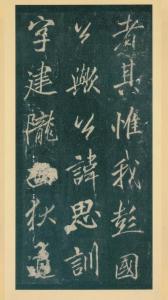 者其惟我彭國
公歟公諱思訓
字建隴西狄道